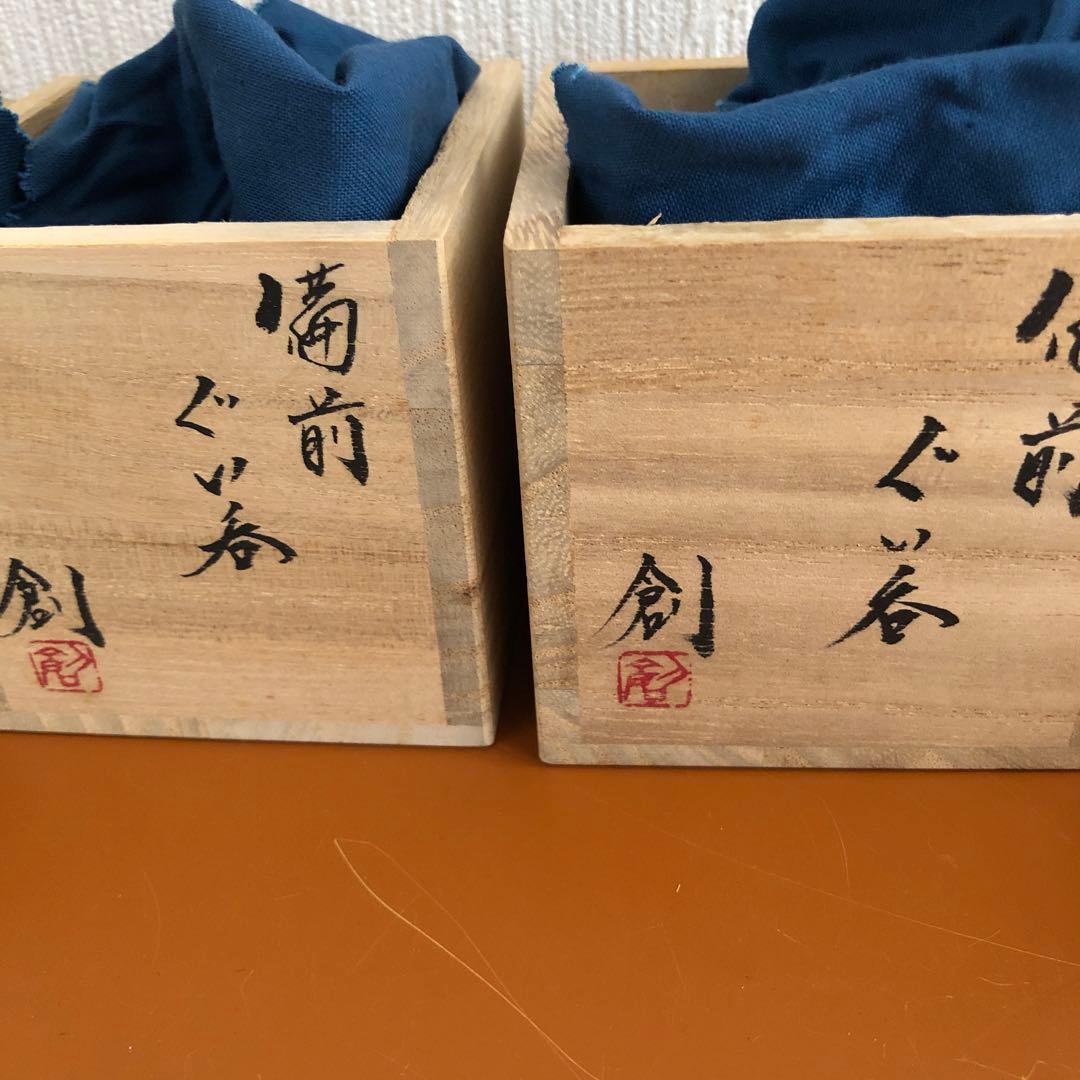 備前
ぐい呑
創
備前
ぐい呑
創